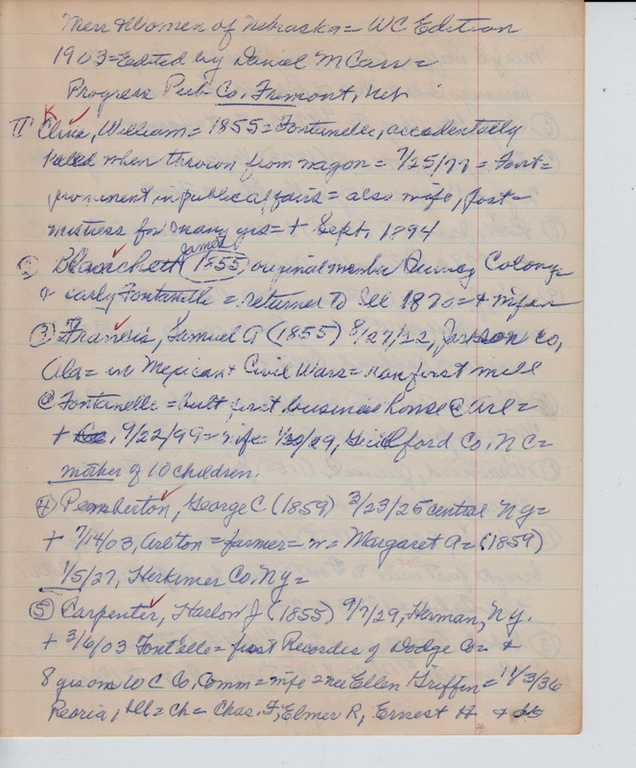 Men & Women of Nebraska = WC Edition
1903 = Edited by Daniel M Carr =
Progress Pub Co, Fremont, Neb
William = 1855 = Fontanelle, accedentally
killed when thrown from wagon = 7/25/77 = Font =
prominent in public affairs = also wife, post =
mistress for many yrs = + Sept, 1894
James
② Blanchett (1855) original member Quincy Colony =
& early Fontanelle = returned to Ill 1870 = +
③ Francis, Samuel A (1855) 8/27/22, Jackson Co,
Ala = in Mexican + Civil Wars = ran first mill
@ Fontanelle = built first business house @ Arl =
+ 9/22/99 = wife = 1/30/29, Guilford Co, NC =
mother of 10 children.
④ Pemberton, George C (1859) 3/23/25 central NY =
+ 7/14/03, Arlton = farmer = w = Margaret A = (1859)
1/5/27, Herkimer Co, NY =
⑤ Carpenter, Harlow J (1855) 9/7/29, Herman, NY.
+ 3/6/03 Font'elle = first Recorder of Dodge Co = &
8 yrs on W C Co, Comm = wife = nee Ellen Griffin = 11/3/36
Peoria, Ill = ch = Chas. F, Elmer R, Ernest H